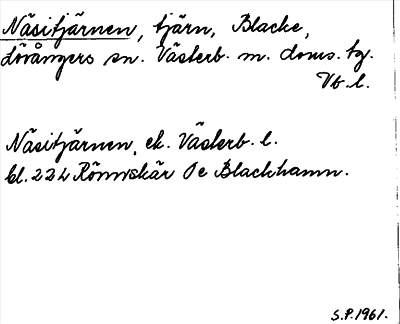 Näsitjärnen, tjärn, Blacke,
Lövångers sn. Västerb. m. doms. tg.
Vb. l.
Näsitjärnen, ek. Västerb. l.
bl. 224 Rönnskär Oe Blackhamn.
S.P. 1961.